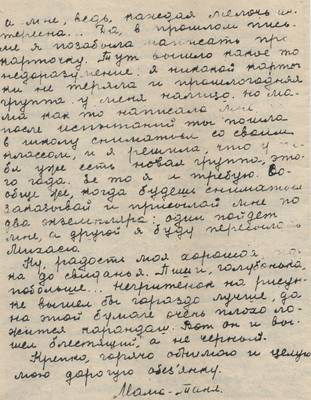 а мне, ведь, каждая мелочь ин-
тересна... Да, в прошлом пись-
ме я позабыла написать про
карточку. Тут вышло какое то
недоразумение. Я никакой карточ-
ки не теряла и прошлогодняя
группа у меня налицо. Но ма-
ма как то написала мне
после испытаний ты пошла
в школу сниматься со своим
классом, и я решила, что у
бя уже есть новая группа, это-
го года. Ее то я и требую. Во-
обще же, когда будешь сниматься
заказывай и присылай мне по
два экземпляра: один пойдет
мне, а другой я буду пересылать

Ну, радость моя хорошая,
на до свиданья. Пиши, голубонька,
побольше... Негритенок на рисун-
ке вышел бы гораздо лучше, да
на этой бумаге очень плохо ло-
жится карандаш. Вот он и вы-
шел блестящий, а не черный.
Крепко, горячо обнимаю и целую
мою дорогую обезьянку.
Мама-Таня.